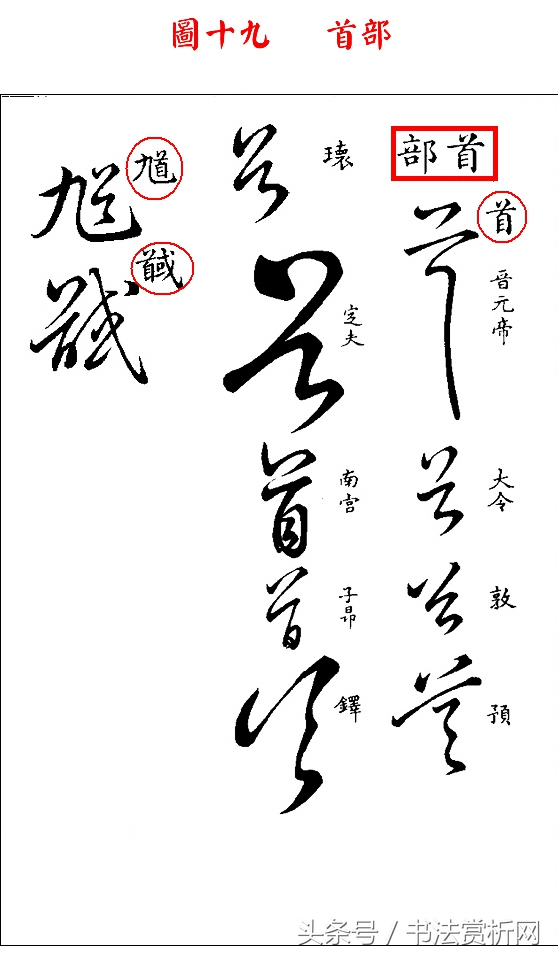 圖十九 首部
首部
首
晉元帝
大令
敦
預
瓌
定夫
南宮
子昂
鐸
馗
馘
头条号 / 书法赏析网